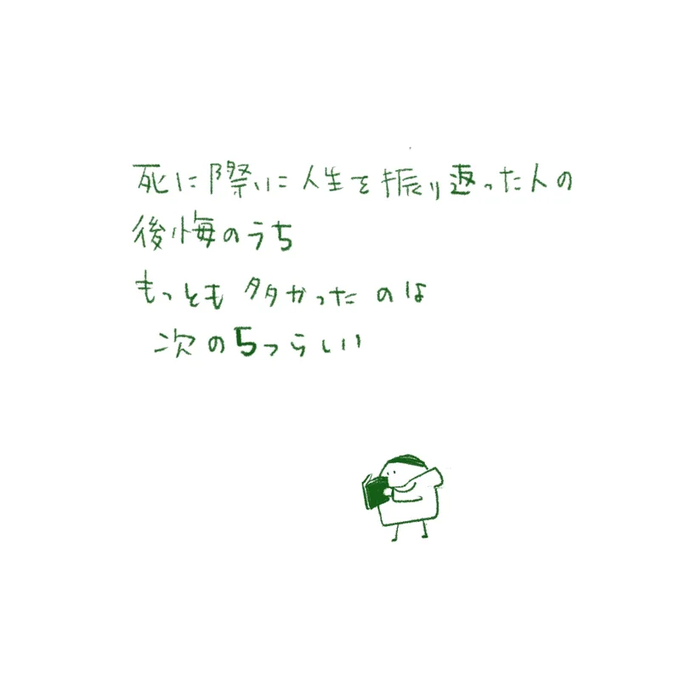 死に際に人生を振り返った人の
後悔のうち
もっとも多かったのは
次の5つらしい